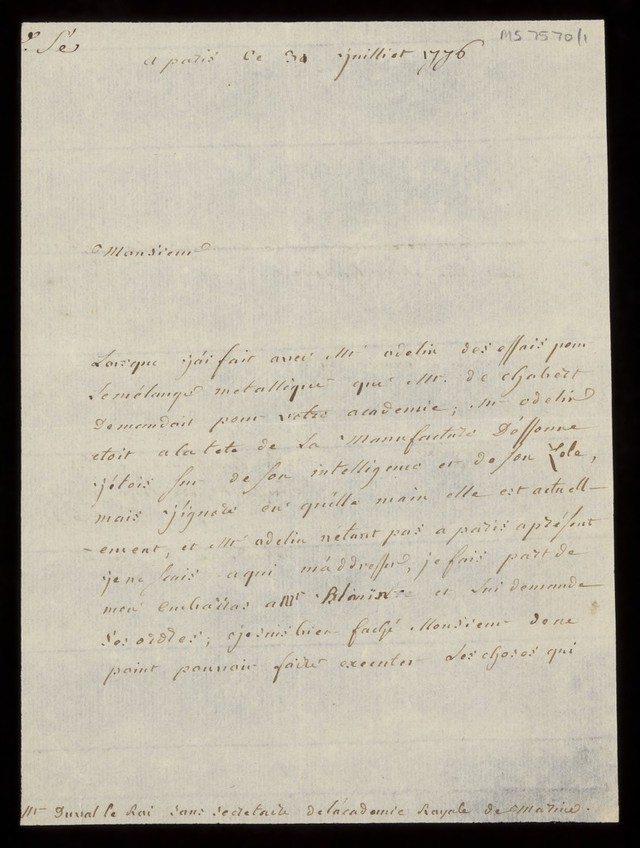 MS 7570/1
a paris ce 30 juilliet 1776
Monsieur
Lorsque j'ai fait avec Mr adelin des essais pour
le mélange metallique que Mr. de chabert
Demandait pour votre academie; Mr adelin
etoit a la tete de la Manufacture D'éssonne
j'étois sur de son intelligence et de son Zele,
mais j'ignore en quélle main elle est actuell-
-ement, et Mr adelin netant pas a paris aprésent
je ne sais a qui m'áddresser, je fais part de
mon Embarras a Mr et lui demande
ses ordres; je suis bien faché Monsieur de ne
point pouvoir faire executer les choses qui
Mr Duval le Roi sous secretaire de l'académie Royale de Marine.